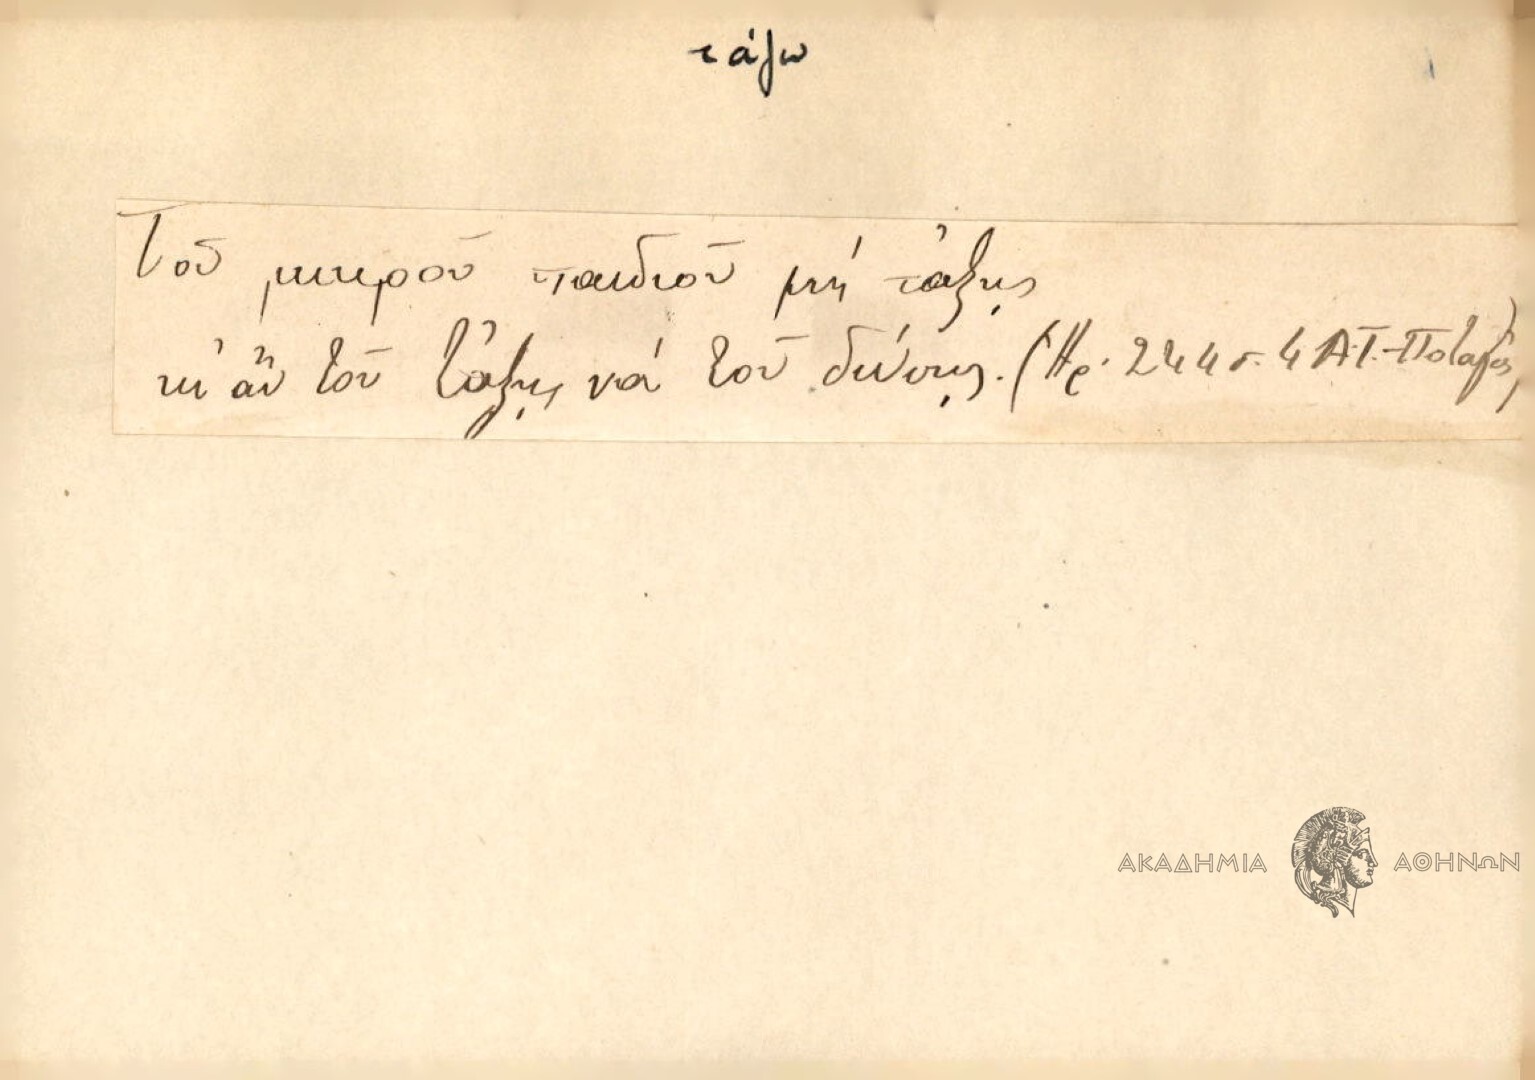 τάζω
Τοῦ μικροῦ παιδιοῦ μή τάξῃς
κι' ἄν τοῦ τάξῃς νά τοῦ δώσῃς. (Ἡρ. 244 σ. 4 Α.Τ.-Ποταμός)
ΑΚΑΔΗΜΙΑ ΑΘΗΝΩΝ